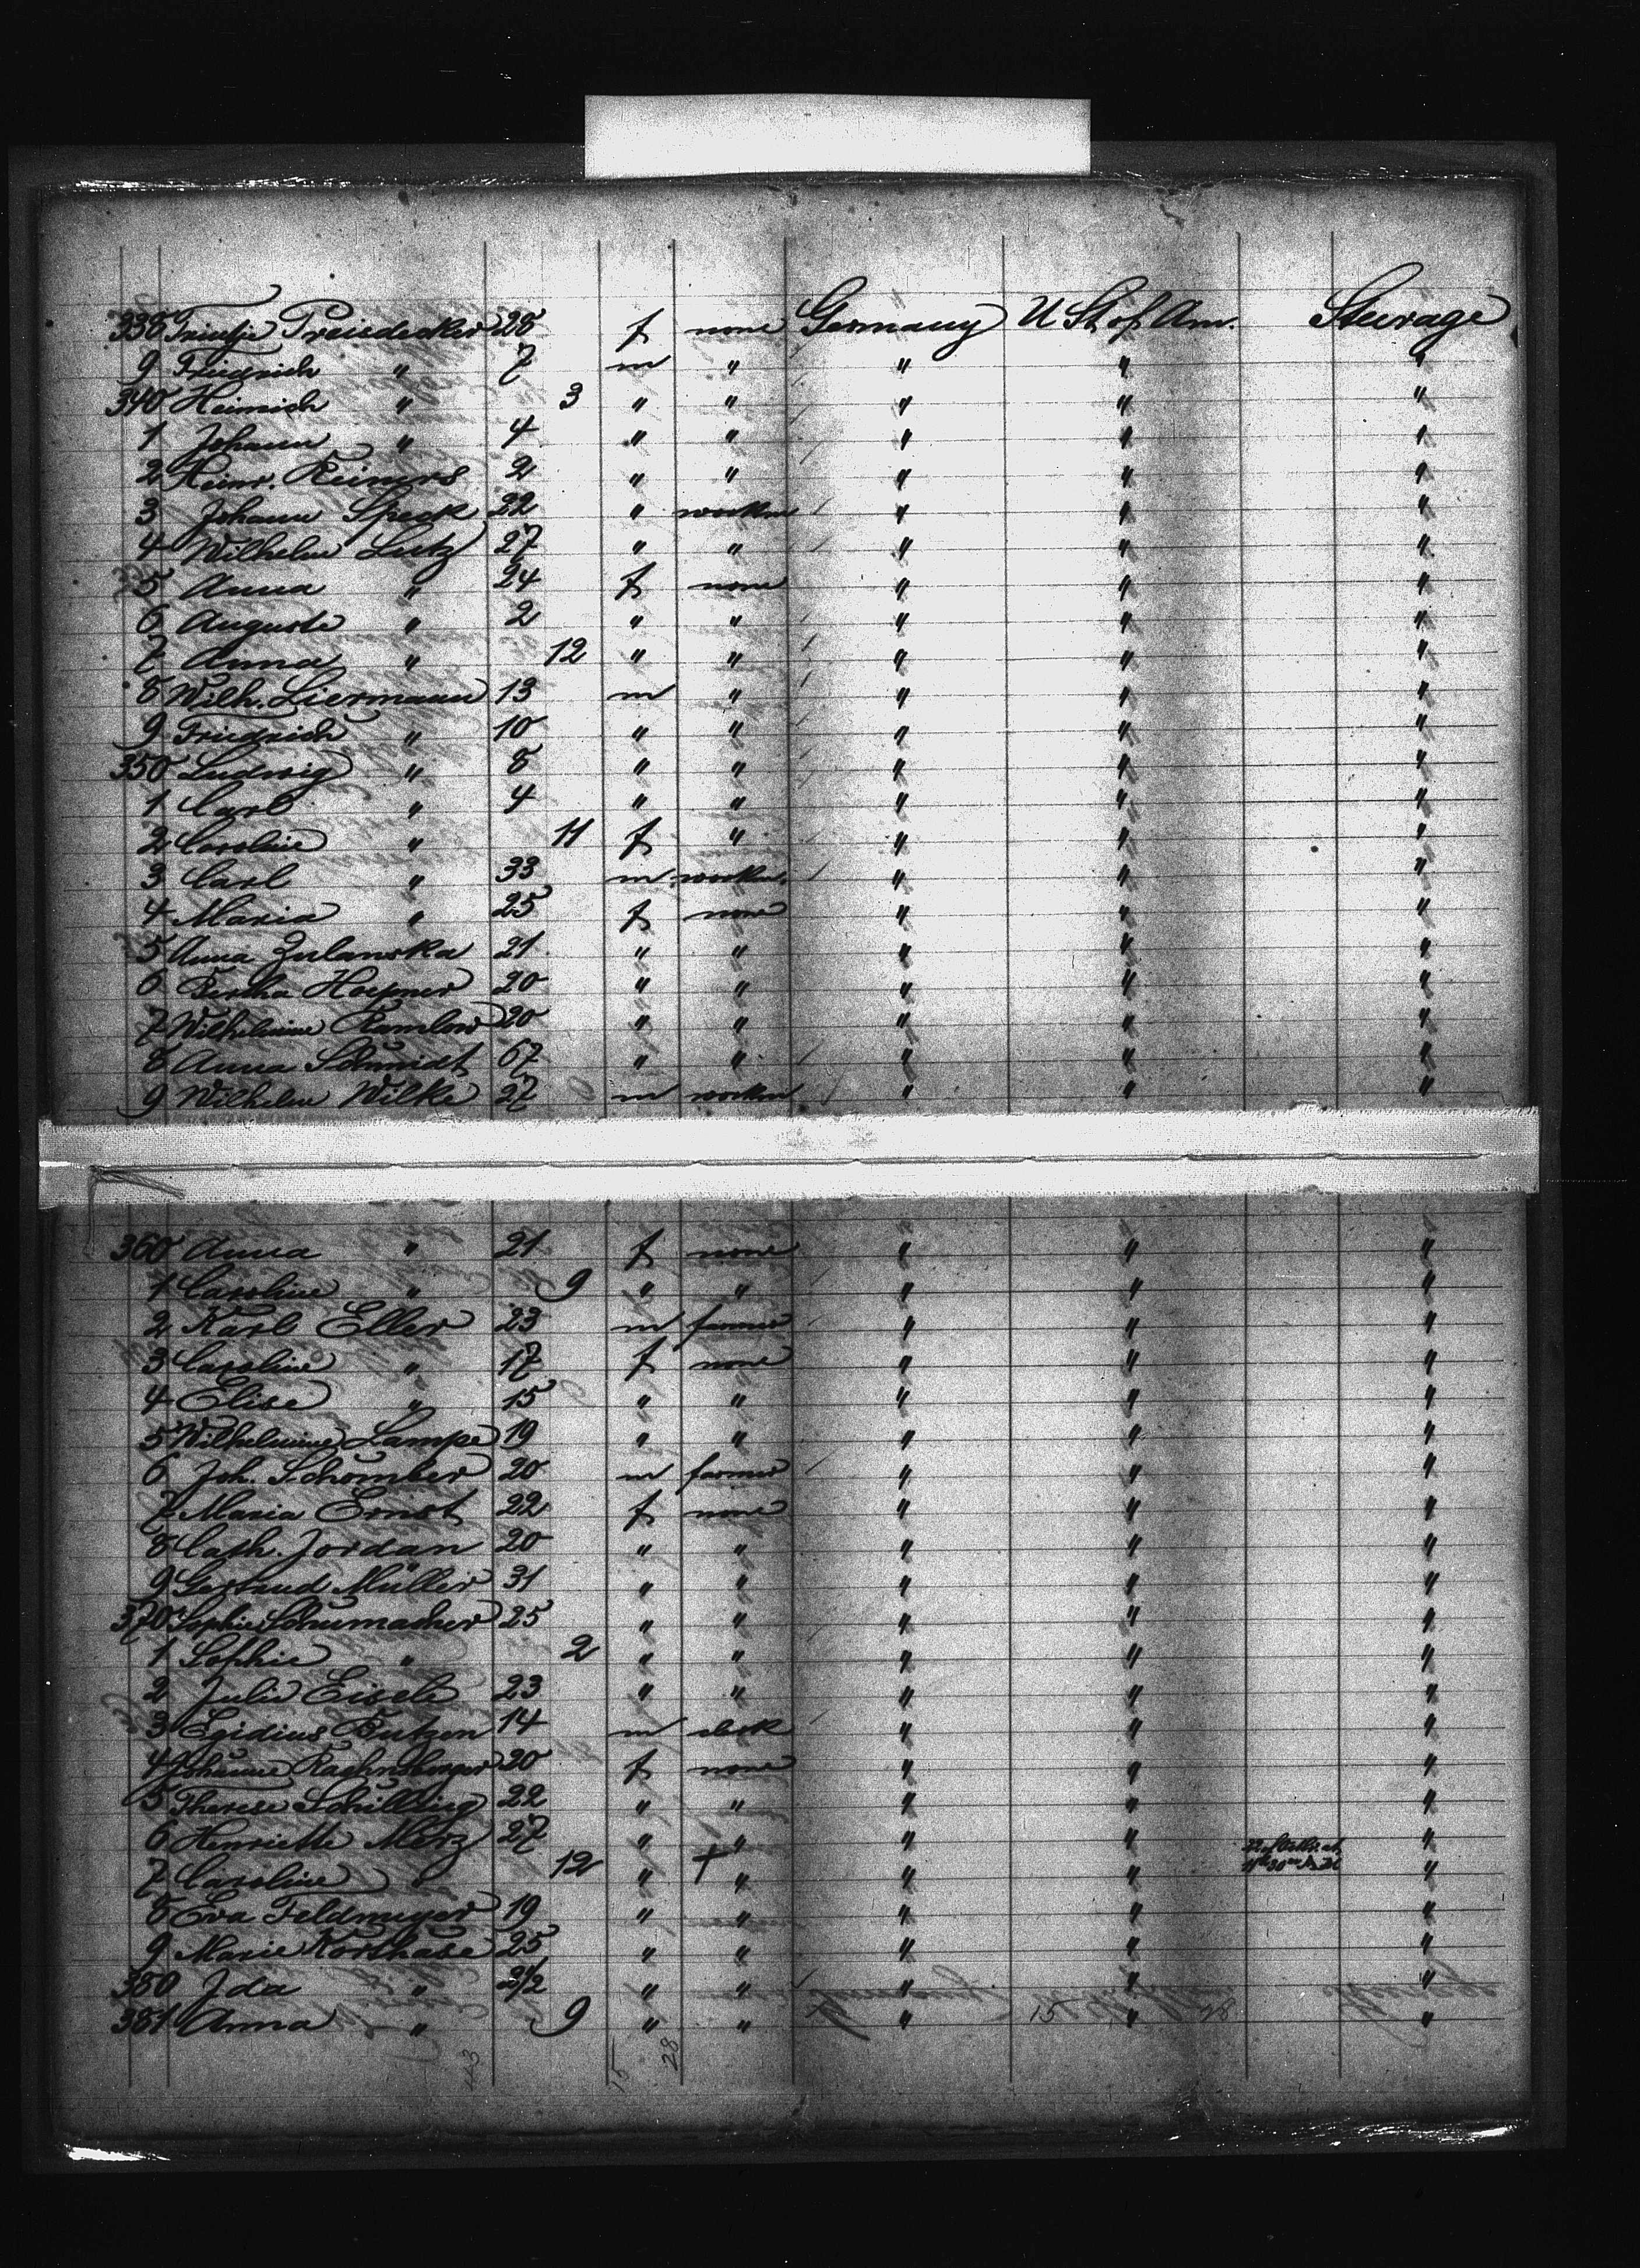 338 Trintje Preisdecker 28 f none Germany U St of Am. Steerage
9 Friedrich " 7 m " " " "
340 Heinrich " 3 " " " " "
1 Johann " 4 " " " " "
2 Heinr. Reiners 2 " " " " "
3 Johann Speck 22 " workm " " "
4 Wilhelm Lutz 27 " " " " "
5 Anna " 24 f none " " "
6 Auguste " 2 " " " " "
7 Anna " 12 " " " " "
8 Wilh. Liermann 13 m " " " "
9 Friedrich " 10 " " " " "
350 Ludwig " 8 " " " " "
1 Carl " 4 " " " " "
2 Caroline " 11 f " " " "
3 Carl " 33 m workm. " " "
4 Maria " 25 f none " " "
5 Anna Zulawska 21 " " " " "
6 Bertha Hoepner 20 " " " " "
7 Wilhelmine Ramlow 20 " " " " "
8 Anna Schmidt 67 " " " " "
9 Wilhelm Wilke 27 m workm " " "
360 Anna " 21 f none " " "
1 Caroline " 9 " " " " "
2 Karl Eller 23 m farmer " " "
3 Caroline " 17 f none " " "
4 Elise " 15 " " " " "
5 Wilhelmine Lampe 19 " " " " "
6 Joh. Schomber 20 m farmer " " "
7 Maria Ernst 22 f none " " "
8 Cath. Jordan 20 " " " " "
9 Gertrud Müller 31 " " " " "
370 Sophie Schumacher 25 " " " " "
1 Sophie " 2 " " " " "
2 Julie Eisele 23 " " " " "
3 Egidius Butzen 14 m clerk " " "
4 Johanne 20 f none " " "
5 Therese Schilling 22 " " " " "
6 Henriette Merz 27 " " " " "
7 Caroline " 12 " + " " " "
8 Eva Feldmeyer 19 " " " " "
9 Marie Korthase 25 " " " " "
380 Ida " 2 1/2 " " " " "
381 Anna " 9 " " " 15 " 28 "
43 15 28